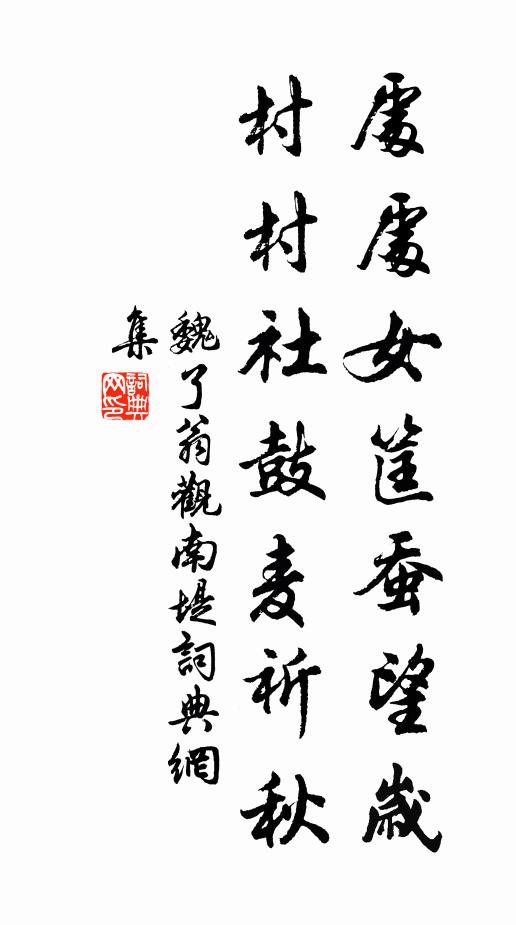 處處女筐蚕望歲
村村社鼓麦祈秋
魏了翁觀南堤詞典網
集
詞典
网印